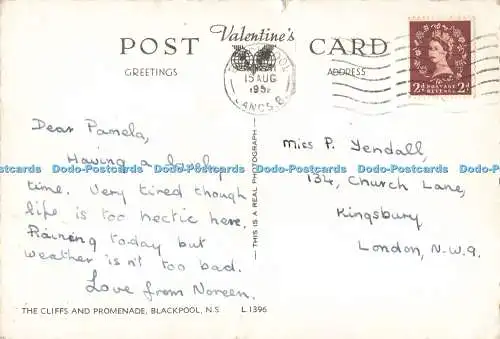 POST Valentine's CARD
GREETINGS ADDRESS
15 AUG
LANCS.
2D POSTAGE REVENUE 2D
Dear Pamela,
Having a lovely
time. Very tired though
life is too hectic here.
Raining today but
weather isn't too bad.
Love from Noreen.
THIS IS A REAL PHOTOGRAPH
Miss P. Yendall,
134, Church Lane,
Kingsbury
London, N.W.9.
Dodo-Postcards Dodo-Postcards Dodo-Postcards Dodo-Postcards
THE CLIFFS AND PROMENADE, BLACKPOOL, N.S L 1396